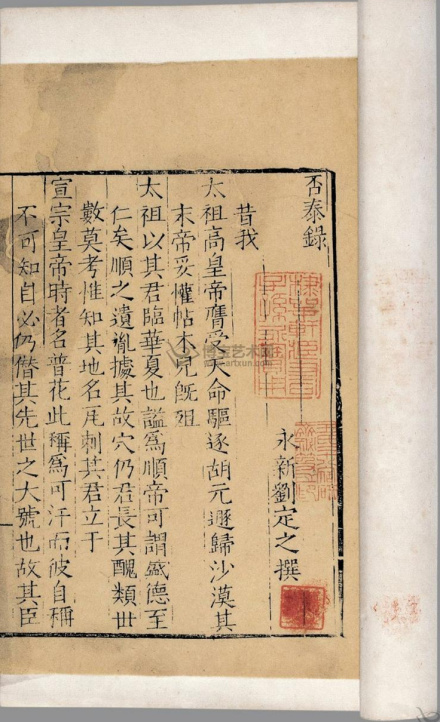 否泰錄
永新劉定之撰
昔我
太祖高皇帝膺受天命驅逐胡元遯歸沙漠其
末帝妥懽帖木兒既殂
太祖以其君臨華夏也謚為順帝可謂盛德至
仁矣順之遺胤據其故穴仍君長其醜類世
數莫考惟知其地名瓦剌其君立于
宣宗皇帝時者名普花此稱為可汗而彼自稱
不可知自必仍僭其先世之大號也故其臣
博宝艺术网
www.artxun.com